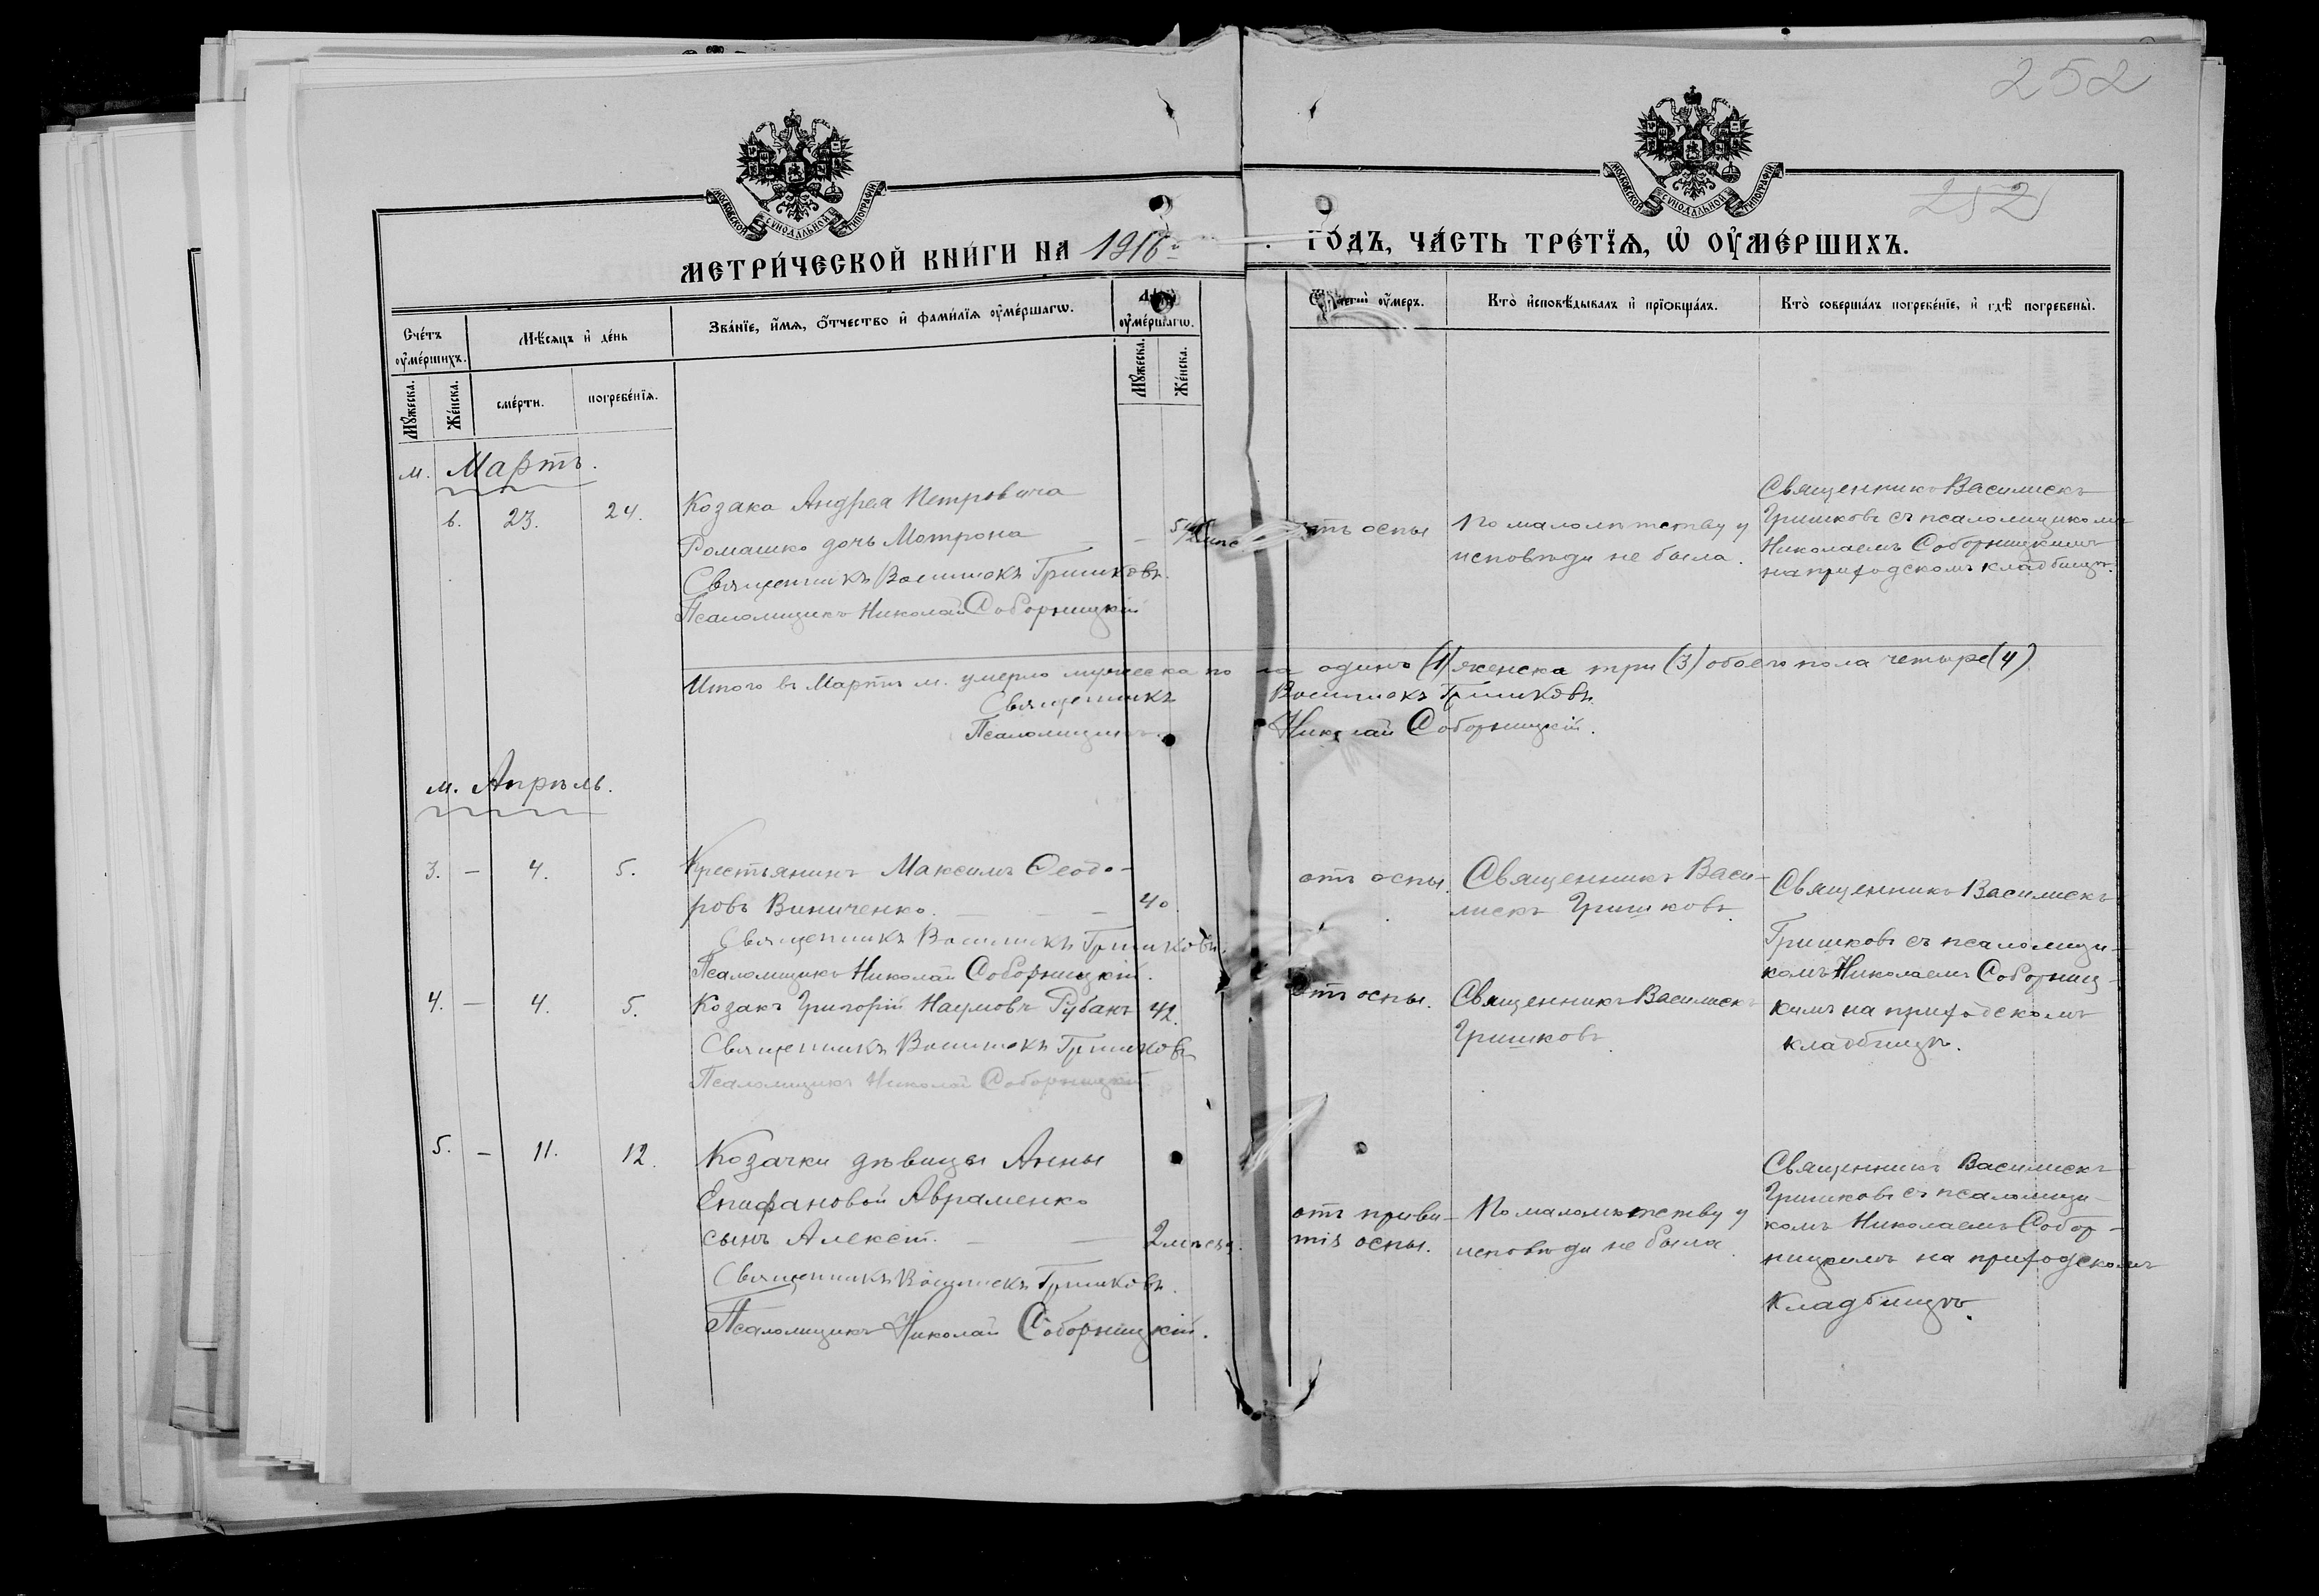 252
252
МОСКОВСКОЙ СѴНОДАЛЬНОЙ ТИПОГРАФІИ
МОСКОВСКОЙ СѴНОДАЛЬНОЙ ТИПОГРАФІИ
МЕТРИ́ЧЕСКОЙ КНИ́ГИ НА 1916 й ГО́ДЪ, ЧА́СТЬ ТРЕ́ТЇѦ, Ѡ҆ ОУ҆МЕ́РШИХЪ.
Сче́тъ оу҆ме́ршихъ.
Мѣ́сѧцъ и҆ де́нь
Зва́нїе, и҆́мѧ, ѻ҆́тчество и҆ фами́лїѧ оу҆ме́ршагѡ.
оу҆ме́ршагѡ.
оу҆́меръ.
Кто̀ и҆сповѣ́дывалъ и҆ прїѻбща́лъ.
Кто̀ соверша́лъ погребе́нїе, и҆ гдѣ̀ погребены̀.
Мꙋ́жеска.
Же́нска.
сме́рти.
погребе́нїѧ.
Мꙋ́жеска.
Же́нска.
м. Мартъ.
6. 23. 24. Козака Андрея Петровича
Ромашко дочь Мотрона
Священникъ Василискъ Гришковъ.
Псаломщикъ Николай Соборницкій
отъ оспы
По малолѣтству у
исповѣди не была.
Священникъ Василискъ
Гришковъ съ псаломщикомъ
Николаемъ Соборницкимъ
на приходскомъ кладбищѣ.
Итого въ Мартѣ м. умерло мужеска пола одинъ (1) женска три (3) обоего пола четыре (4)
Священникъ Василискъ Гришковъ.
Псаломщикъ Николай Соборницкій.
м. Апрѣль.
3. — 4. 5. Крестьянинъ Максимъ Ѳеодо-
ровъ Виниченко. — — — 40
Священникъ Василискъ Гришковъ.
Псаломщикъ Николай Соборницкій.
отъ оспы.
Священникъ Васи-
лискъ Гришковъ.
Священникъ Василискъ
Гришковъ съ псаломщи-
комъ Николаемъ Соборниц-
кимъ на приходскомъ
кладбищѣ.
4. — 4. 5. Козакъ Григорій Наумовъ Рубанъ 42.
Священникъ Василискъ Гришковъ
Псаломщикъ Николай Соборницкій.
отъ оспы.
Священникъ Василискъ
Гришковъ.
5. — 11. 12. Козачки дѣвицы Анны
Епифановой Авраменко
сынъ Алексій. — — 2 мѣсяц.
Священникъ Василискъ Гришковъ.
Псаломщикъ Николай Соборницкій.
отъ приви-
тія оспы.
По малолѣтству у
исповѣди не была.
Священникъ Василискъ
Гришковъ съ псаломщи-
комъ Николаемъ Собор-
ницкимъ на приходскомъ
кладбищѣ.